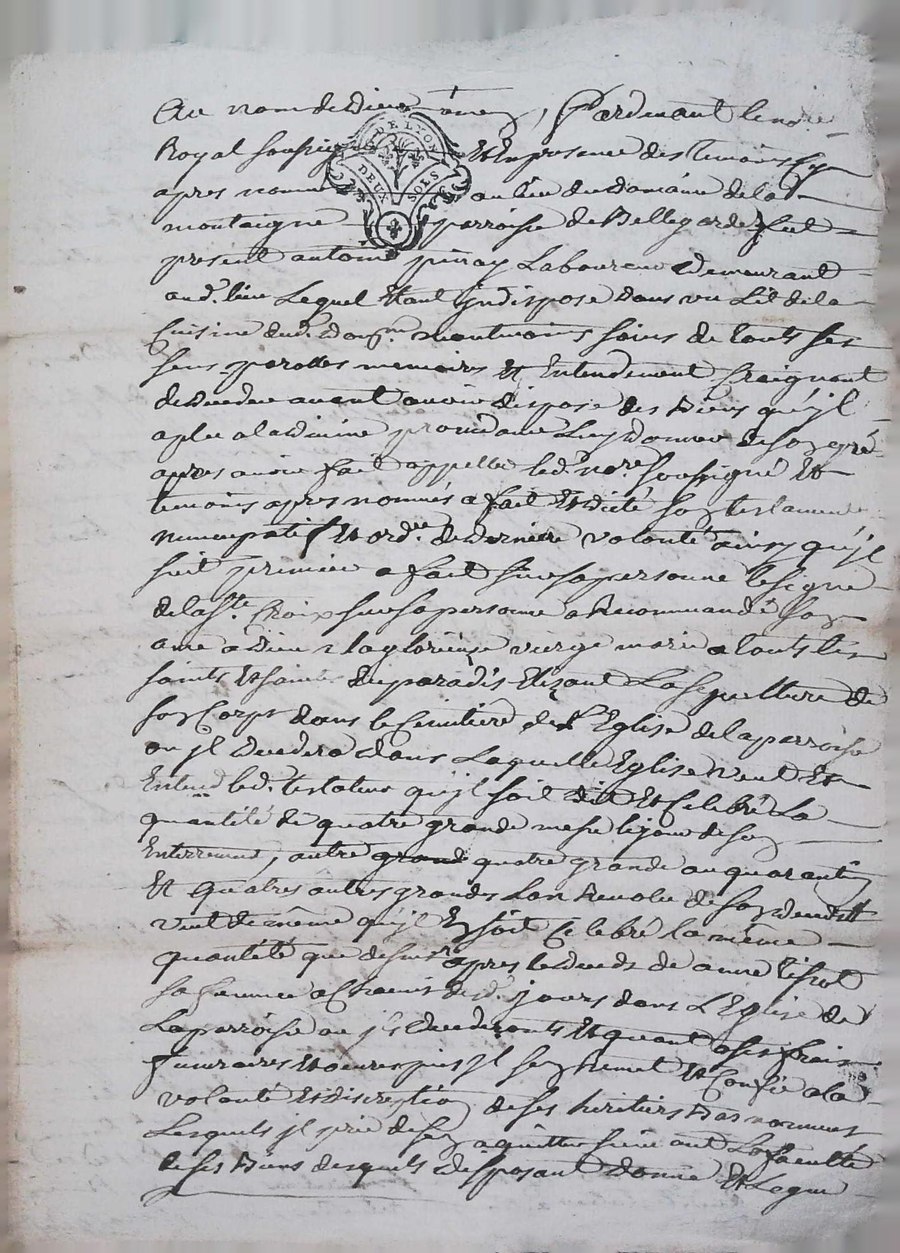 Au nom de Dieu amen, Pardevant le no.re
Royal soussigné Et En presence des temoins Cy
DE LYON
DEUX SOLS
apres nommé au lieu du domaine de la
montaigne parroisse de Bellegarde fut
present antoine pinay Laboureur demeurant
aud. lieu Lequel Etant jndispose dans un Lit de la
Cuisine dud. dom.ne neantmoins sains de touts ses
sens parolles memoires Et Entendement Craignant
de deceder avant avoir dispose des Biens qu'jl
a plu a la divine providance Luy donner de son gré
apres avoir fait appeller led. no.re soussigné Et
temoins apres nommés a fait Et dicté son testament
nuncupatif Et ord.re de derniere volonté ainsy qu'jl
suit premier a fait sur sa personne le signe
de la s.te Croix sur sa personne a Recommandé son
ame a Dieu a la glorieuse vierge marie a touts les
saints Et saintes du paradis Elizant La sepulture de
son Corps dans le Cimetiere de L'Eglise de la parroisse
ou jl decedera dans Laquelle Eglise veut Et
Entend led. testateur qu'jl soit dit Et Celebré La
quantité de quatre grande messe le jour de son
Enterrement, autre grande quatre grande au quarantin
Et quatres autres grandes Lan Revolu de son deceds Et
veut de même qu'jl En soit Celebré la même
quantité que dessus apres le deceds de anne
sa femme a Chacuns desd. jours dans L'Eglise de
La parroisse ou jls decederonts Et quant a ses frais
funeraires Et oeuvres pies jl sen Remet Et Confie a la
volonté Et discretion de ses heritiers Bas nommés
Lesquels jl prie de sen aquitter suivant La faculté
de ses Biens desquels disposant donne Et Legue